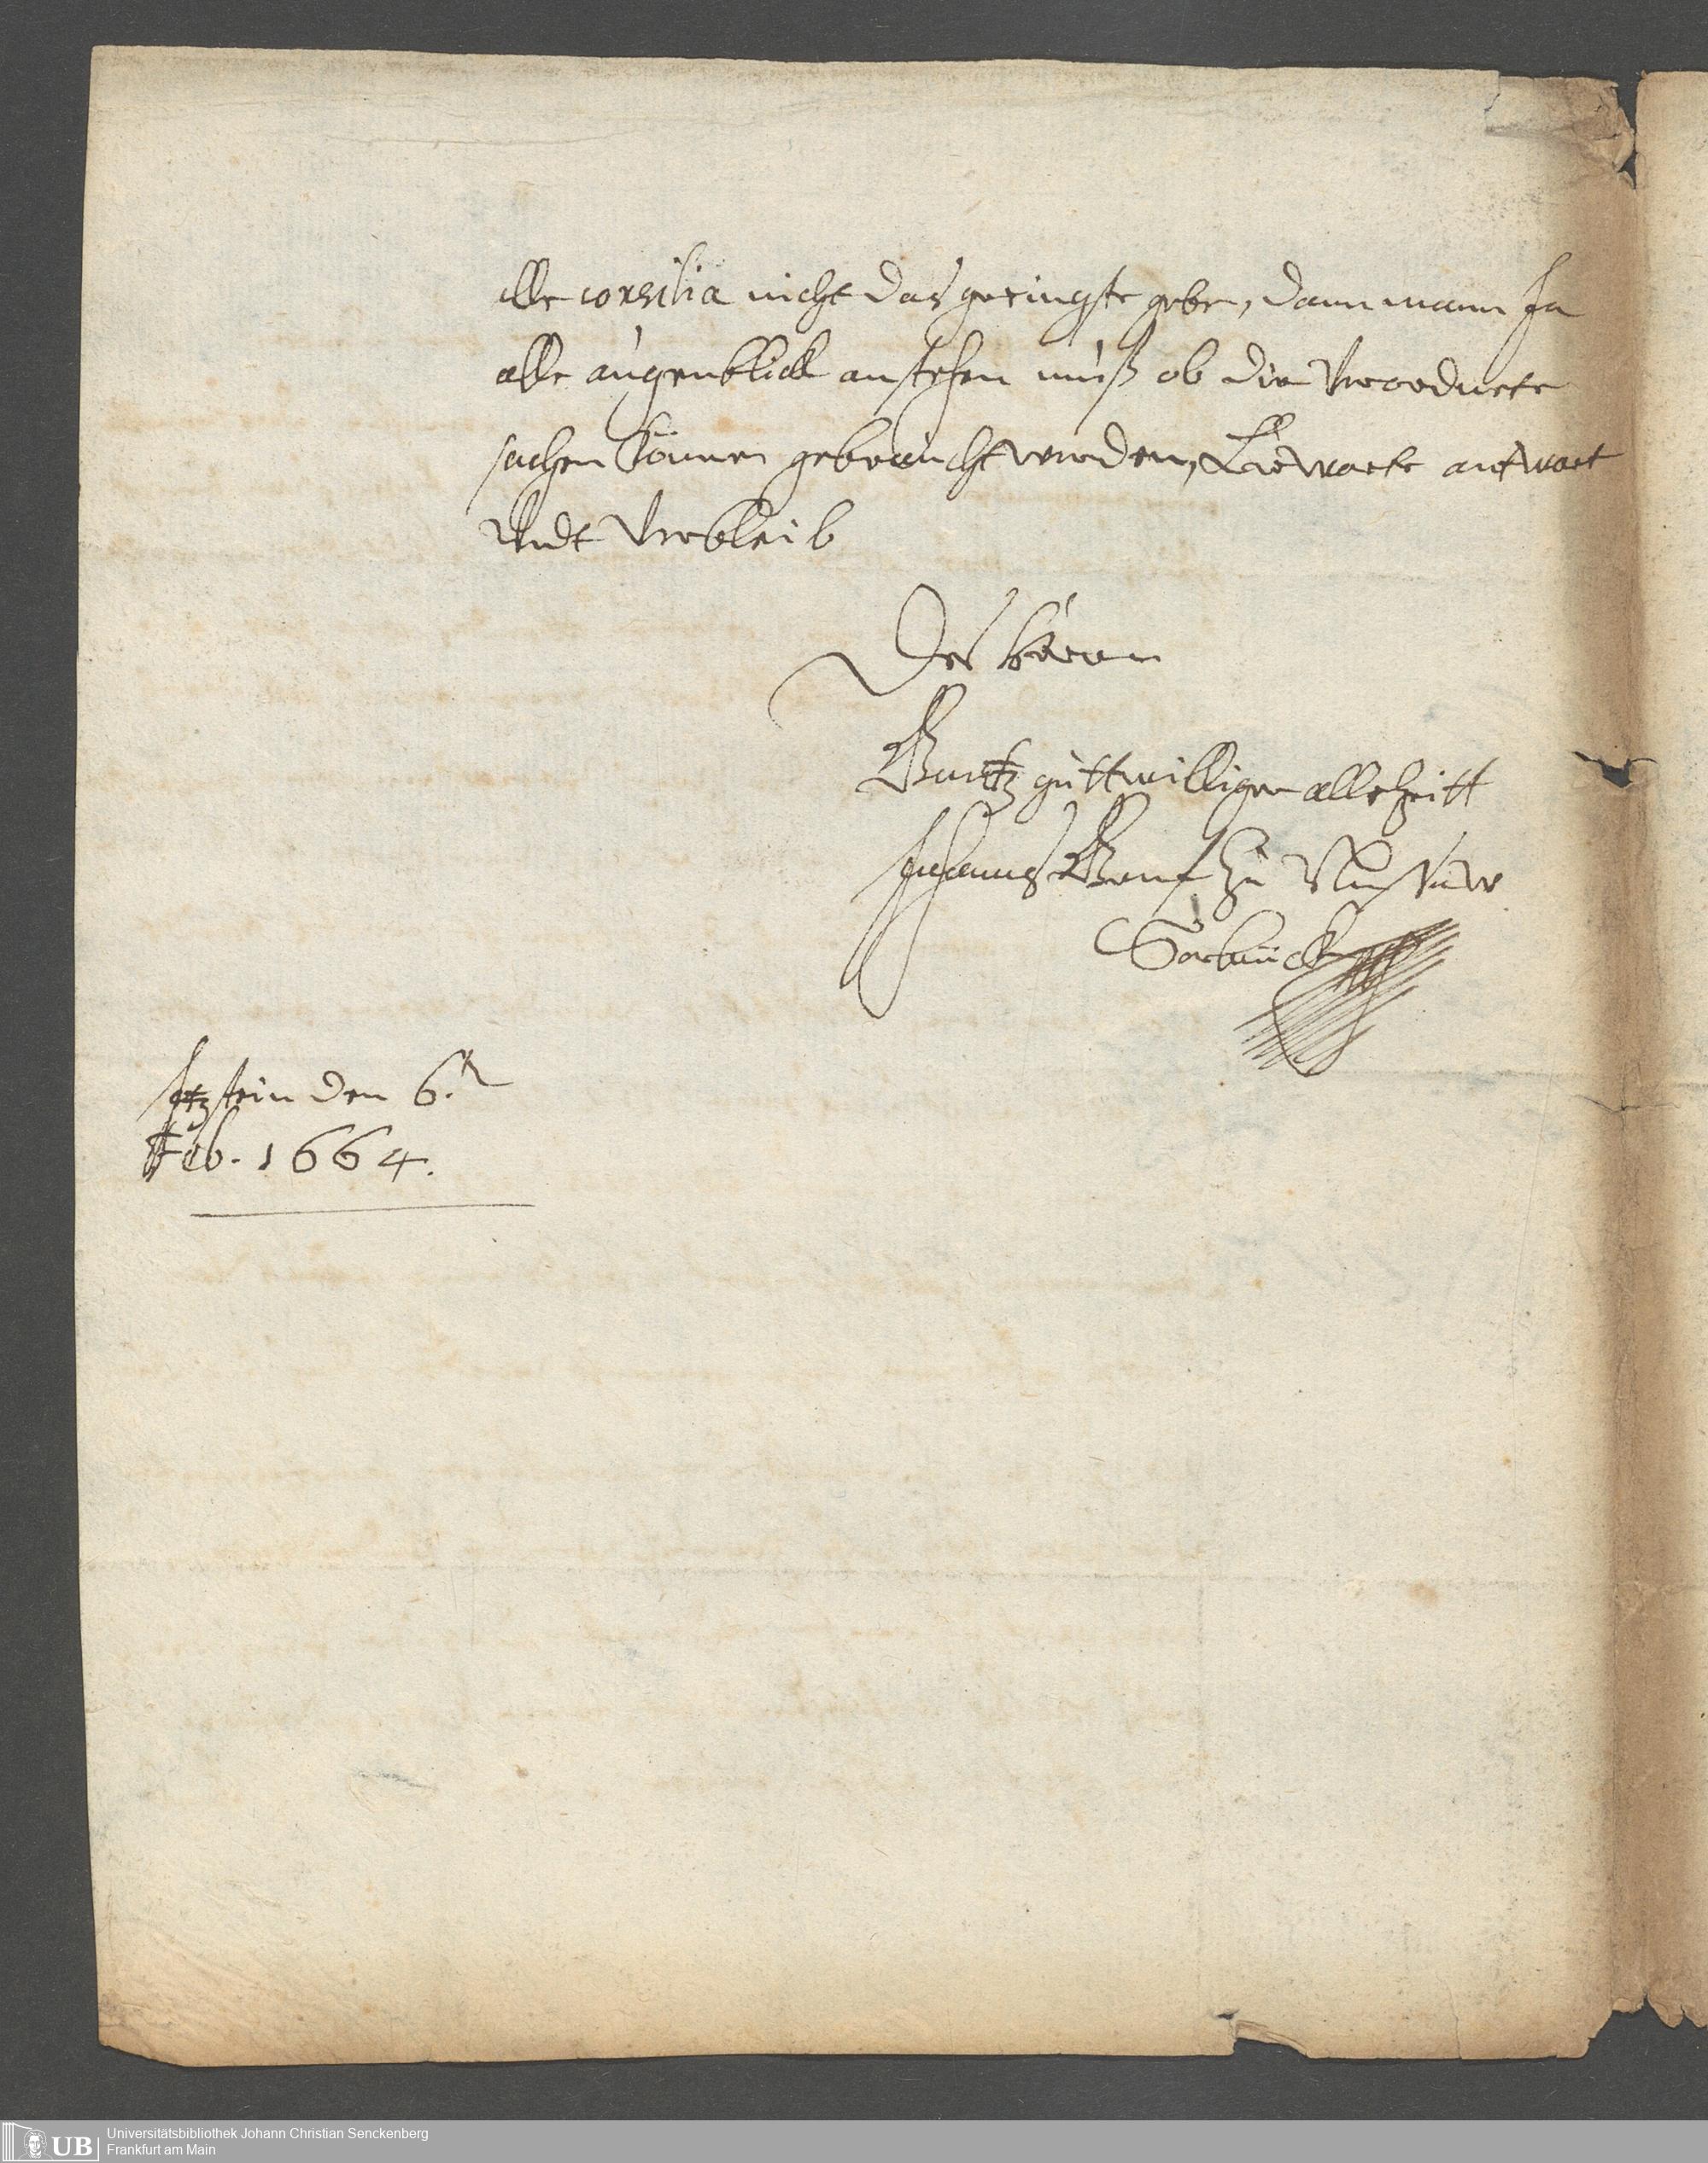 alle consilia nicht das geringste gebe, dann mann Ja
alle augenblick anstehen muß ob die Verordnete
sachen können gebraucht werden, Erwarte antwort
Undt Verbleib
Des herren
Gantz guttwilliger allezeitt
Johannes Graf Zu Nassaw
Sarbrück
Itzstein den 6.
Feb. 1664.
UB
Universitätsbibliothek Johann Christian Senckenberg
Frankfurt am Main